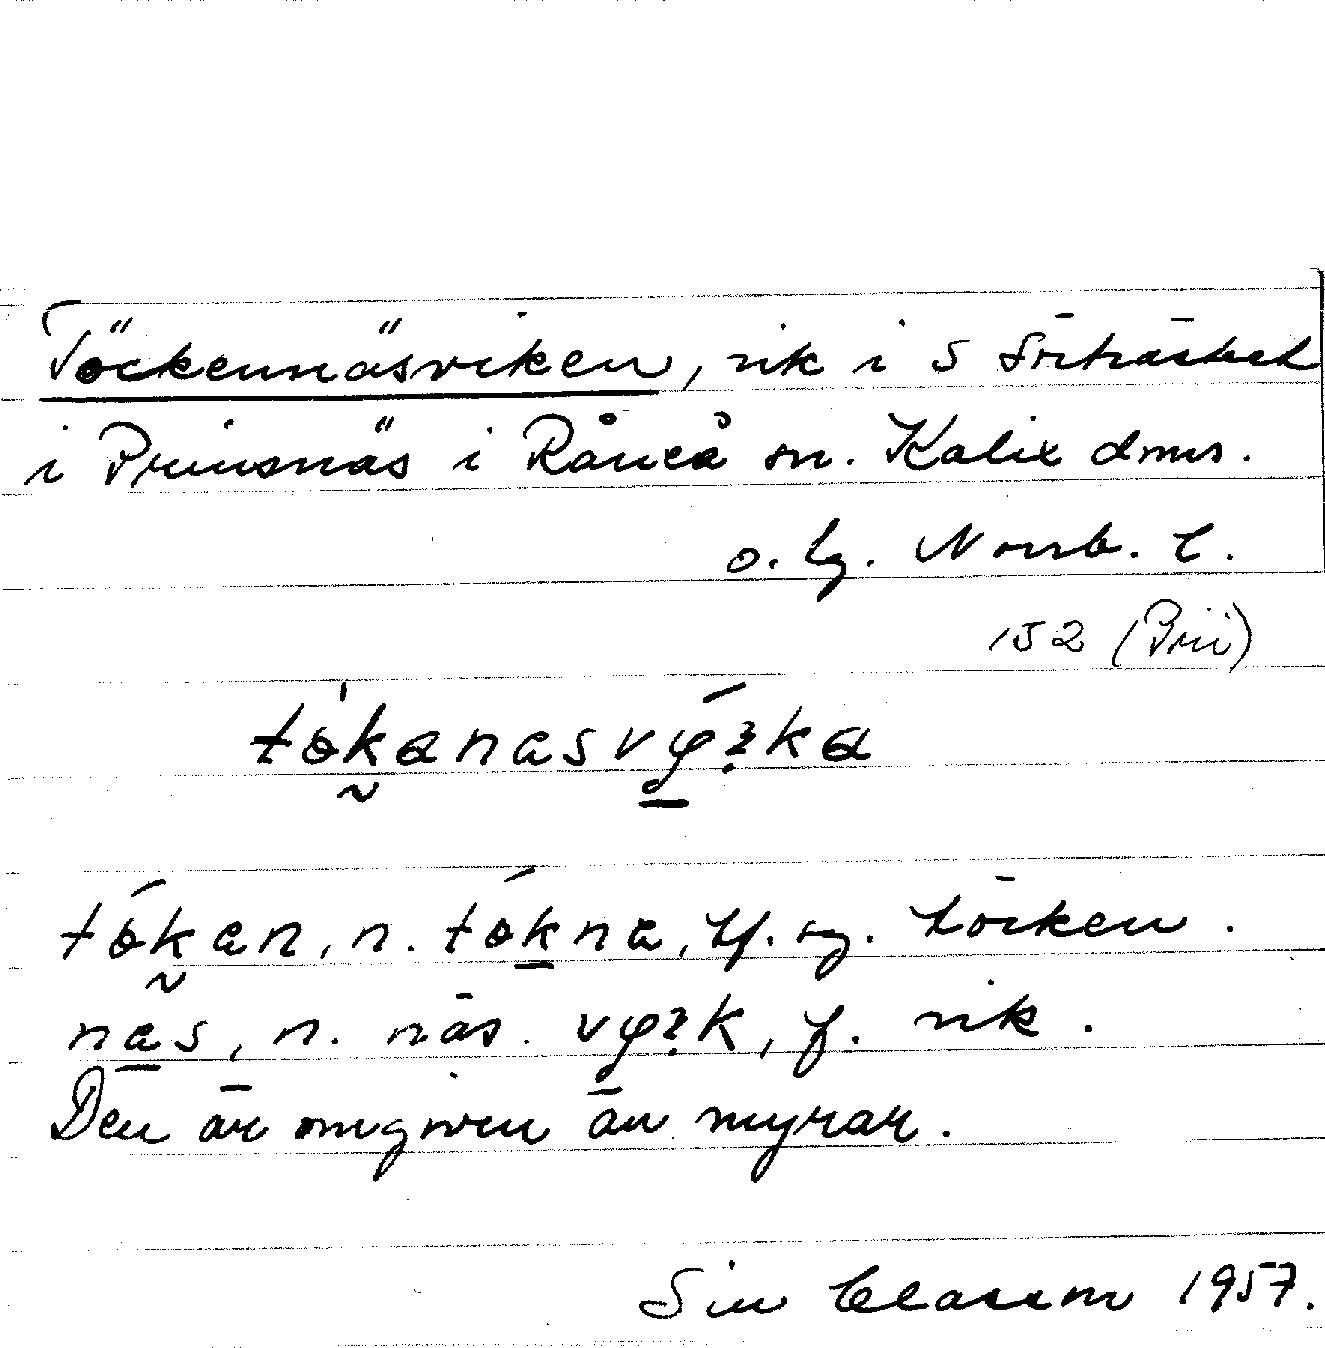 Töckennäsviken, vik i S Sörträsket
i Prinsnäs i Råneå sn. Kalix dmns.
o. lg. Norrb. l.
152 (Prii)
tökanasvik
tökan, n. tökna, bf. sg. töcken.
nas, n. näs. vik, f. vik.
Den är omgiven av myrar.
Siv Clasum 1957.